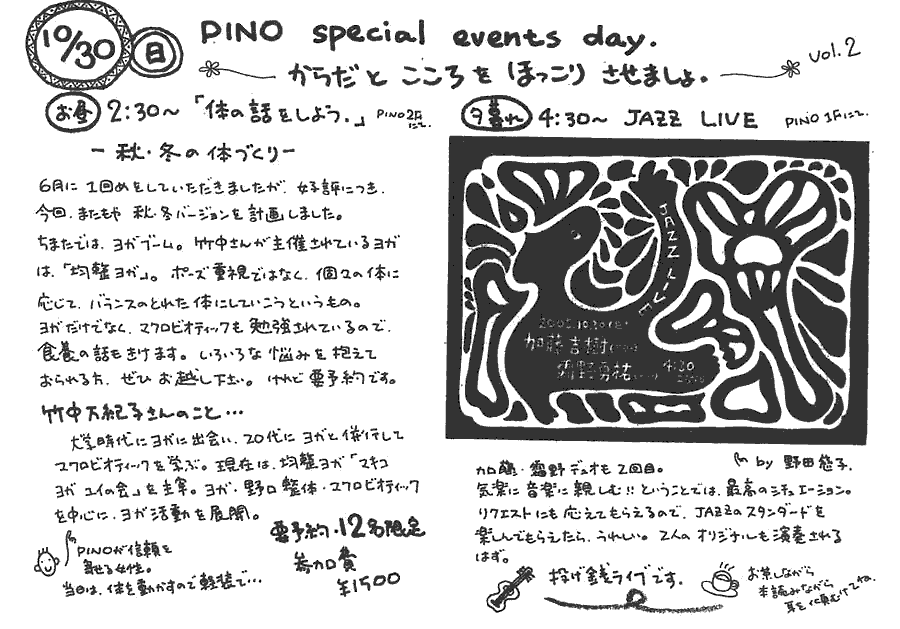 10/30 日 PINO special events day.
からだと こころを ほっこり させましょ。 vol.2
お昼 2:30～ 「体の話をしよう。」 PINO2Fにて.
ー 秋・冬の体づくり ー
6月に 1回めをしていただきましたが、好評につき、
今回、またもや 秋・冬バージョンを計画しました。
ちまたでは、ヨガブーム。竹中さんが主催されているヨガ
は、「均整ヨガ」。ポーズ重視ではなく、個々の体に
応じて、バランスのとれた体にしていこうというもの。
ヨガだけでなく、マクロビオティックも勉強されているので、
食養の話もきけます。いろいろな悩みを抱えて
おられる方、ぜひお越し下さい。けれど要予約です。
竹中万紀子さんのこと…
大学時代にヨガに出会い、20代にヨガと併行して
マクロビオティックを学ぶ。現在は、均整ヨガ「マキコ
ヨガ ユイの会」を主宰。ヨガ・野口整体・マクロビオティック
を中心に、ヨガ活動を展開。
PINOが信頼を
寄せる女性。
当日は、体を動かすので軽装で…
要予約・12名限定
参加費
¥1500
夕暮れ 4:30～ JAZZ LIVE PINO 1Fにて.
JAZZ LIVE
2005.10.30(日)
加藤吉樹
4:30
by 野田悠子.
加藤・霜野デュオも2回目。
気楽に音楽に親しむ!!ということでは、最高のシチュエーション。
リクエストにも応えてもらえるので、JAZZのスタンダードを
楽しんでもらえたら、うれしい。2人のオリジナルも演奏される
はず。
投げ銭ライブです。
お茶しながら
本読みながら
耳を傾むけてね.